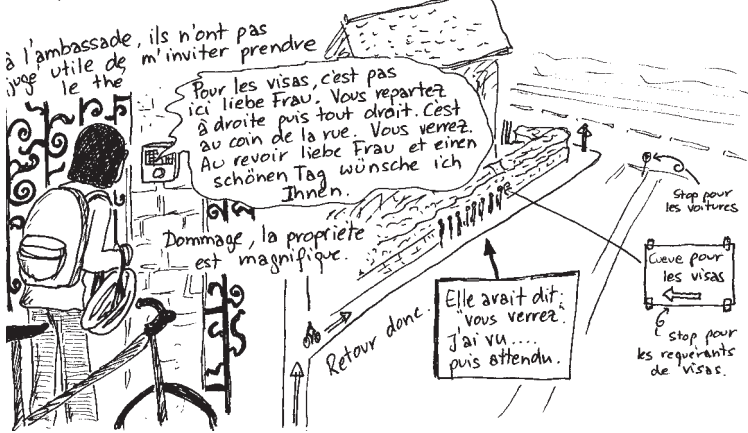 à l'ambassade, ils n'ont pas
jugé utile de m'inviter prendre
le thé
Pour les visas, c'est pas
ici liebe Frau. Vous repartez
à droite puis tout droit. C'est
au coin de la rue. Vous verrez.
Au revoir liebe Frau et einen
schönen Tag wünsche ich
Ihnen.
Dommage, la propriété
est magnifique.
Retour donc.
Elle avait dit:
"vous verrez".
J'ai vu....
puis attendu.
Stop pour
les voitures
Queue pour
les visas
Stop pour
les requérants
de visas.